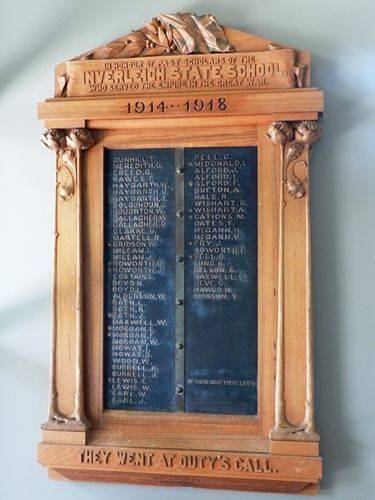 IN HONOUR OF PAST SCHOLARS OF THE
INVERLEIGH STATE SCHOOL,
WHO SERVED THE EMPIRE IN THE GREAT WAR.
1914-1918
DUNHILL. T.
MEREDITH. G.
CREED. G.
HAWES. F.
HAYGARTH. W.
HAYGARTH. J.
HAYGARTH. J.
COLQUHOUN.
HOUGHTON. W.
GALLAGHER. W.
GALLAGHER. P.
CLARKE. S.
MARTELL. R.
BRIDSON. W.
MCLEAN.
MCLEAN. J.
HOWORTH. R.
HOWORTH.
COSTAIN.
BOYD. N.
BOYD.
ALDERSON. W.
BATH.
BATH. R.
BATH. J.
MAXWELL. W.
MORGAN.
MORGAN.
MORGAN. W.
MOWAT.
MOWAT. G.
WOOD. W.
BURRELL. A.
BURRELL. J.
LEWIS. C.
LEWIS. W.
EARL. W.
EARL. J.
PEEL. G.
MCDONALD.
ALFORD. J.
ALFORD.
ALFORD. F.
BUFTON. A.
HALE. R.
WISHART. R.
WISHART. A.
CATIONS. M.
OATES. F.
MCCANN. H.
MCCANN. V.
FRY. J.
HOWORTH. F.
PEEL.
LONG. S.
NELSON. A.
MAXWELL.
NEVE.
HAWES. H.
DICKSON. T.
THESE GAVE THEIR LIVES
THEY WENT AT DUTY'S CALL.